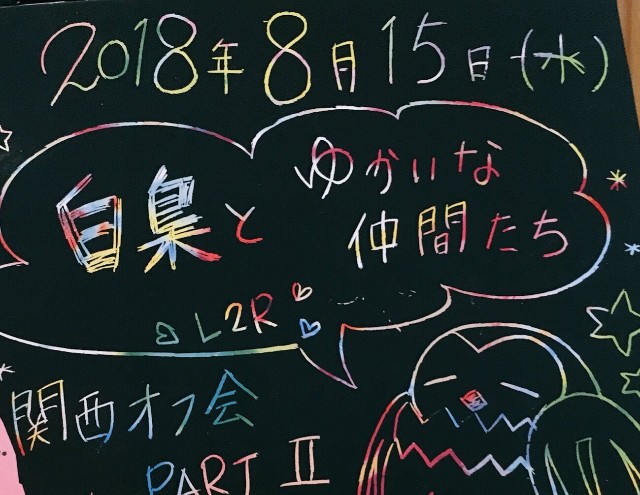 2018年8月15日(水)
白梟と
ゆかいな
仲間たち
L2R
関西オフ会
PART II